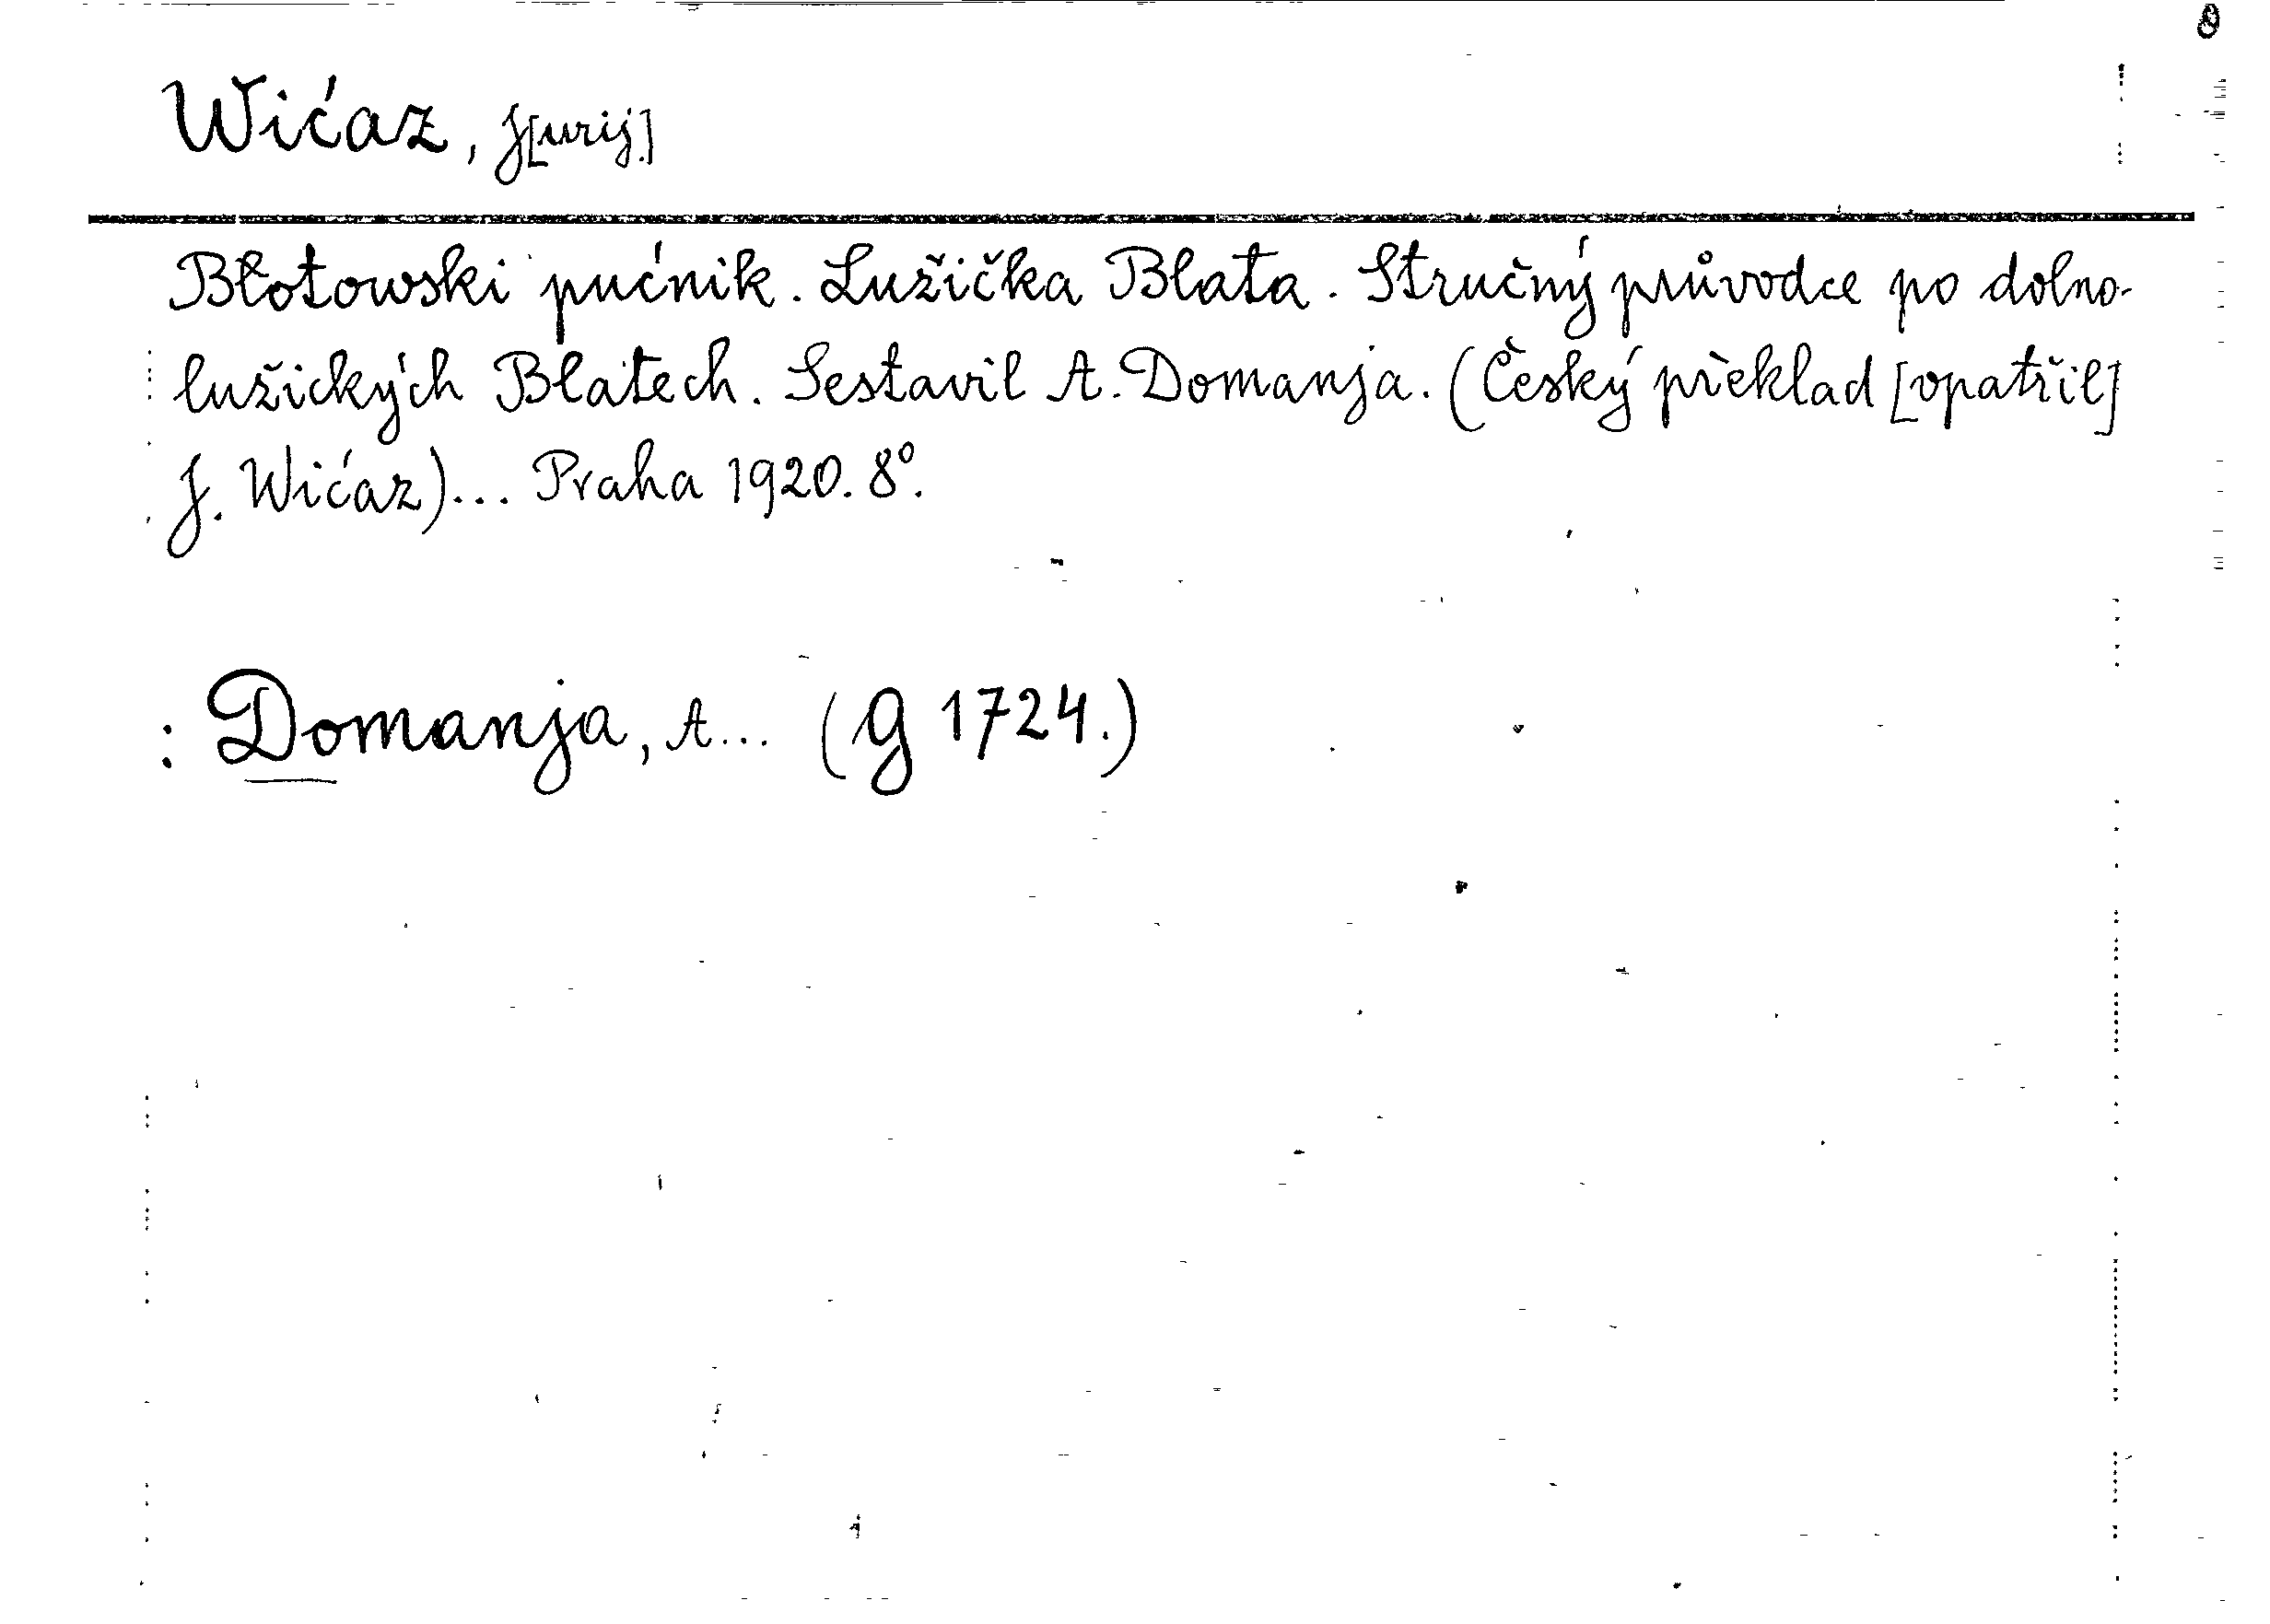 Wićaz, J[urij]
Błotowski pućnik. Lužička Blata. Stručný průvodce po dolno-
lužických Blatech. Sestavil A. Domanja. (Český překlad [opatřil]
J. Wićaz)... Praha 1920. 8°.
: Domanja, A... (G 1724.)